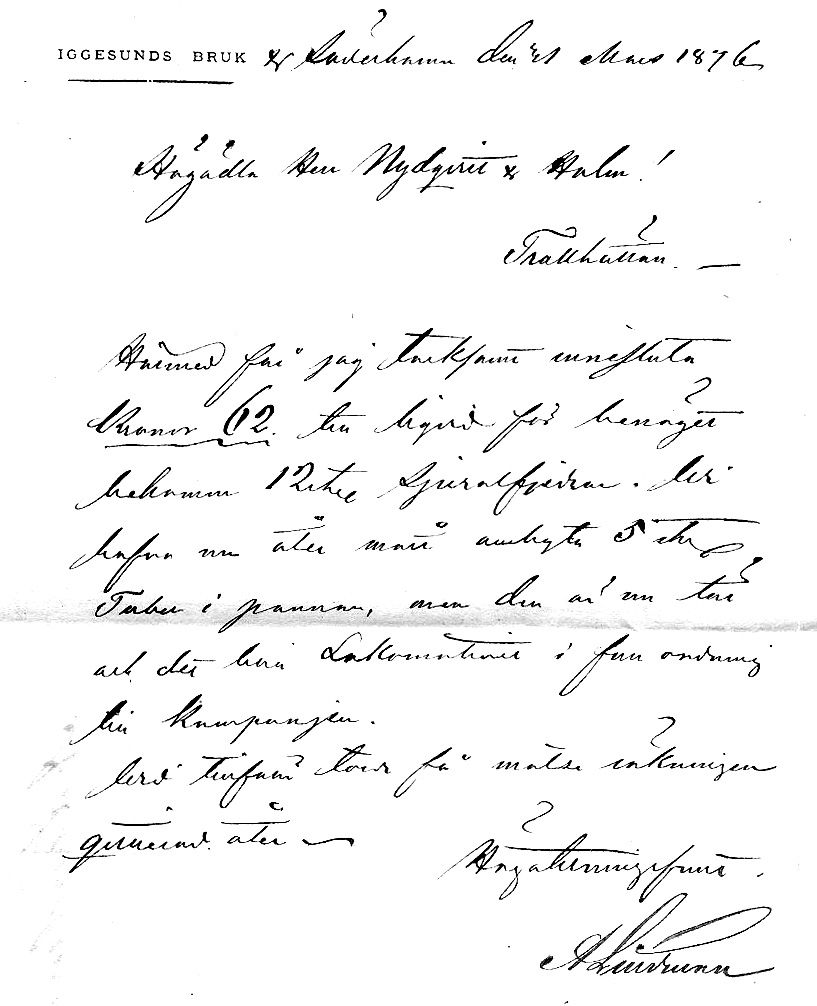 IGGESUNDS BRUK & Söderhamn den 21 Mars 1876
Högädla Herr Nydqvist & Holm!
Trollhättan. —
Härmed får jag tacksamt innesluta
Kronor 62. till liqvid för benäget
bekomne 12 stce Spiralfjedrar. Vi
hafva nu åter måst ombyta 5 stce
Tuber i pannan, men den är nu tät
och det hela Lokomotivet i full ordning
till kampanjen.
Vid tillfälle torde få motse räkningen
qvitterad åter —
Högaktningsfullt.